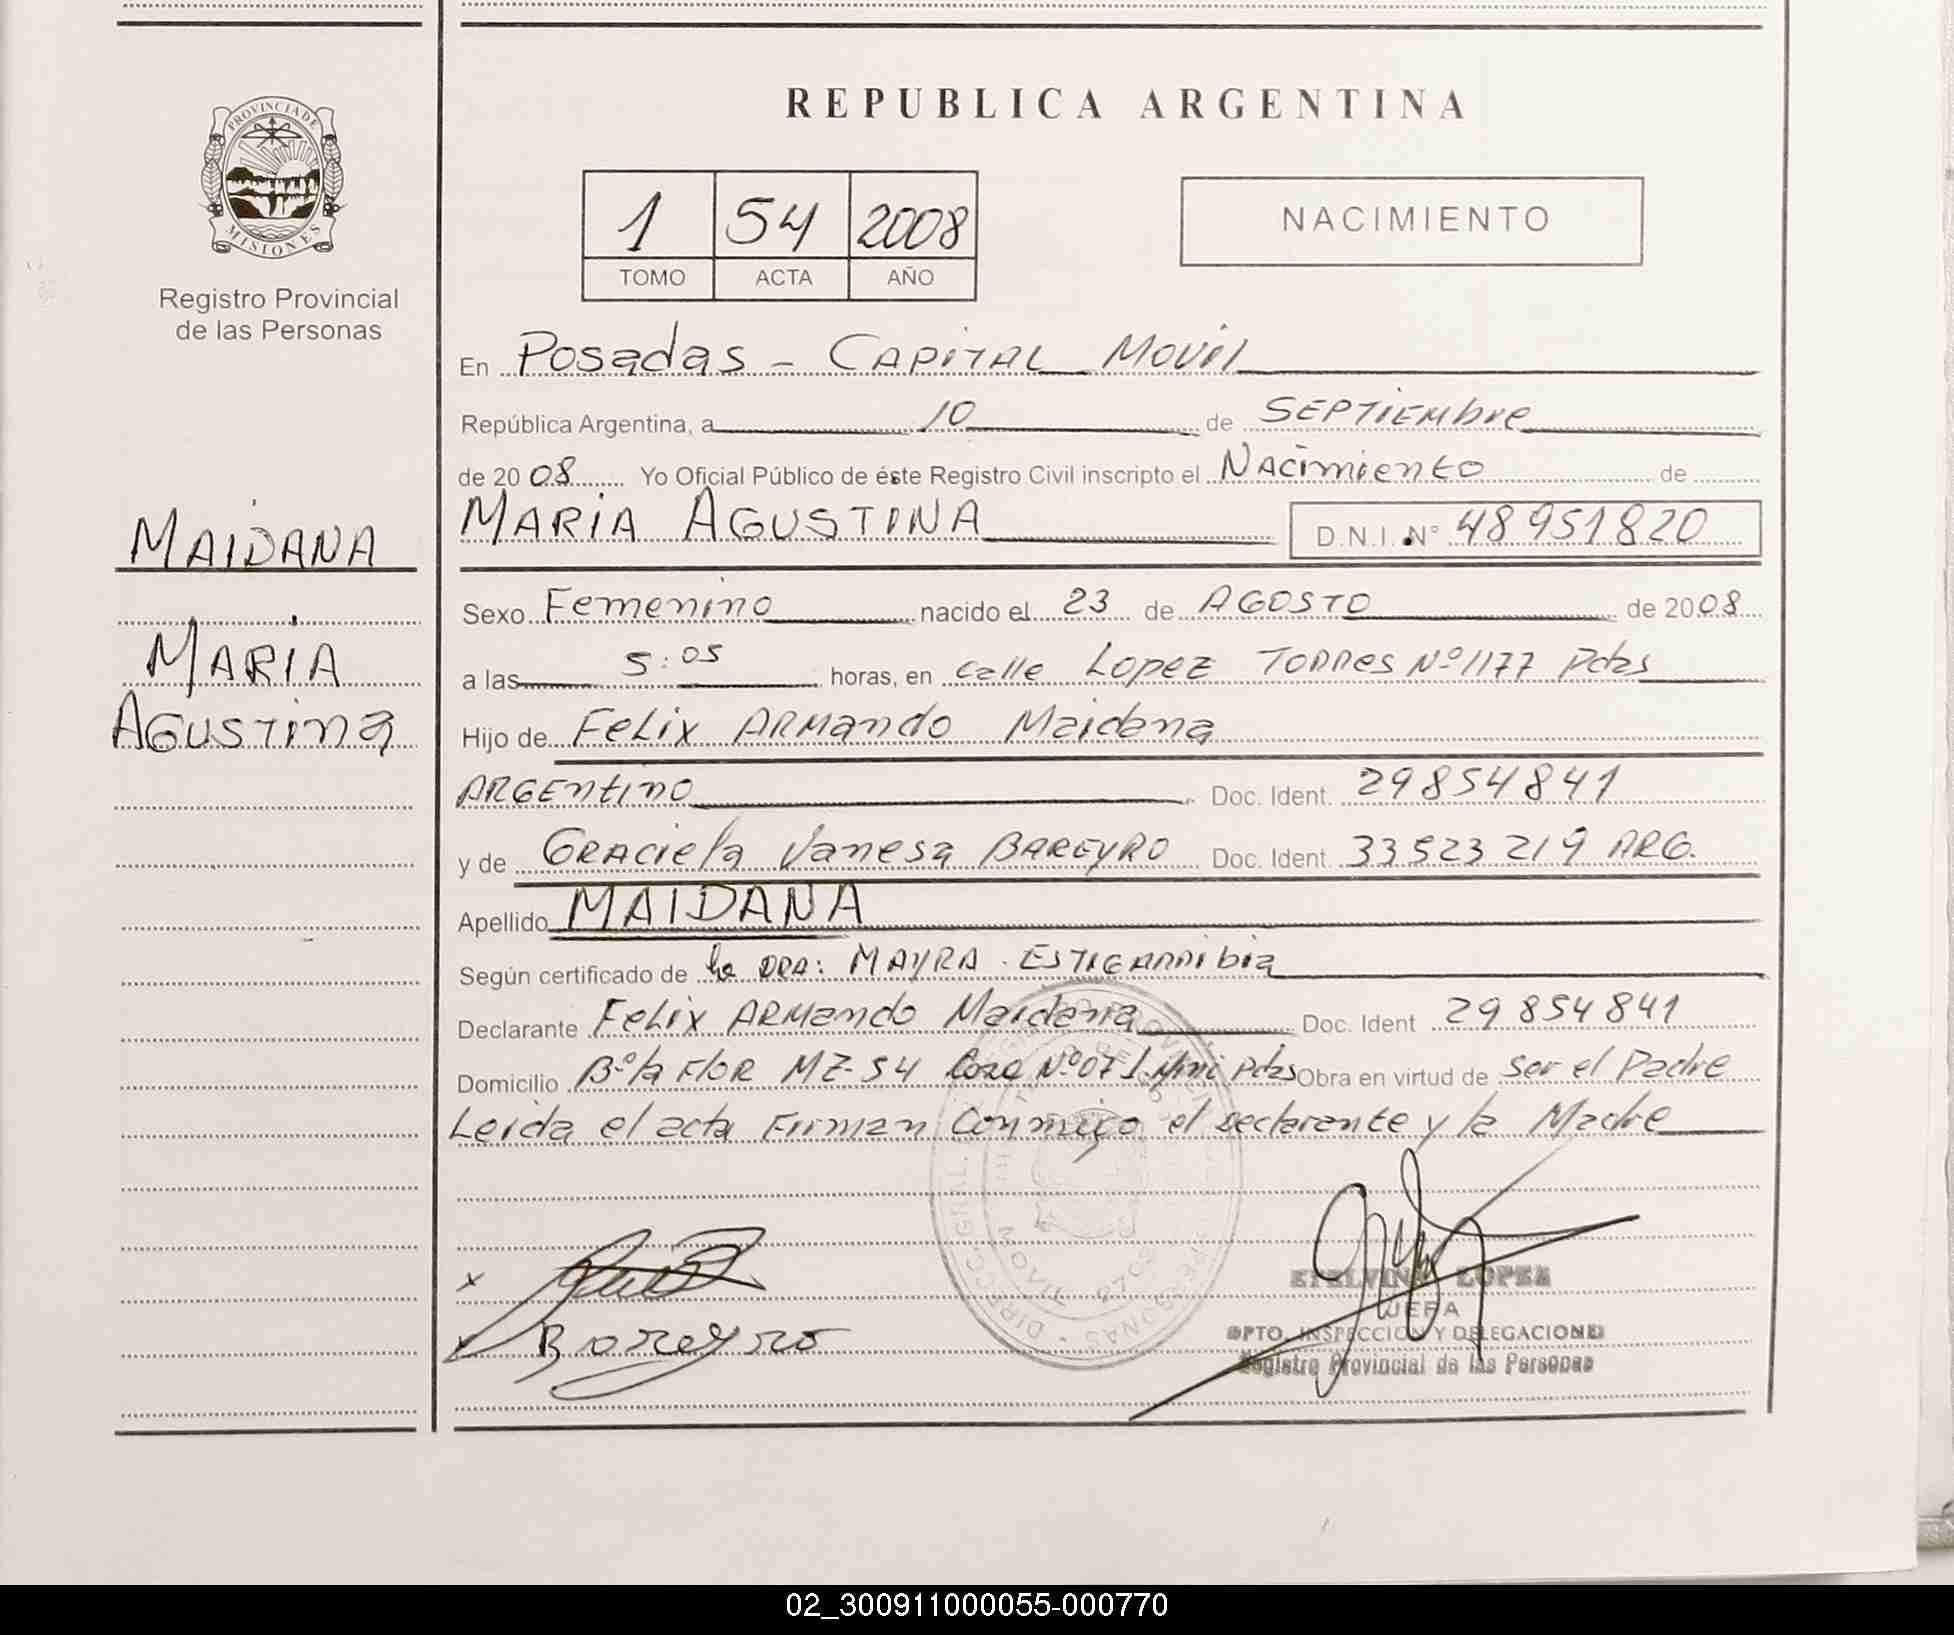 PROVINCIA DE
MISIONES
Registro Provincial
de las Personas
MAIDANA
MARIA
AGUSTINA
REPUBLICA ARGENTINA
1 54 2008
TOMO ACTA AÑO
NACIMIENTO
En Posadas - CAPITAL MOVIL
República Argentina, a 10 de SEPTIEMbre
de 2008 Yo Oficial Público de éste Registro Civil inscripto el NAcimiento de
MARIA AGUSTINA D.N.I. N° 48951820
Sexo Femenino nacido el 23 de AGOSTO de 2008
a las 5:05 horas, en calle Lopez TORRes Nº 1177 Pdas
Hijo de Felix ARMando Maidana
ARGEntino Doc. Ident. 29854841
y de GRACiela Vanesa BAREYRO Doc. Ident. 33523219 ARG.
Apellido MAIDANA
Según certificado de la DRA: MAYRA ESTIGARRibia
Declarante Felix ARMando Maidana Doc. Ident 29854841
Domicilio Bº la FLOR MZ-54 Casa Nº 07 Pdas Obra en virtud de ser el Padre
Leida el acta Firman Conmigo el declarante y la Madre
Bareyro
ETELVINA LOPEZ
JEFA
DPTO. INSPECCION Y DELEGACIONES
Registro Provincial de las Personas
02_300911000055-000770